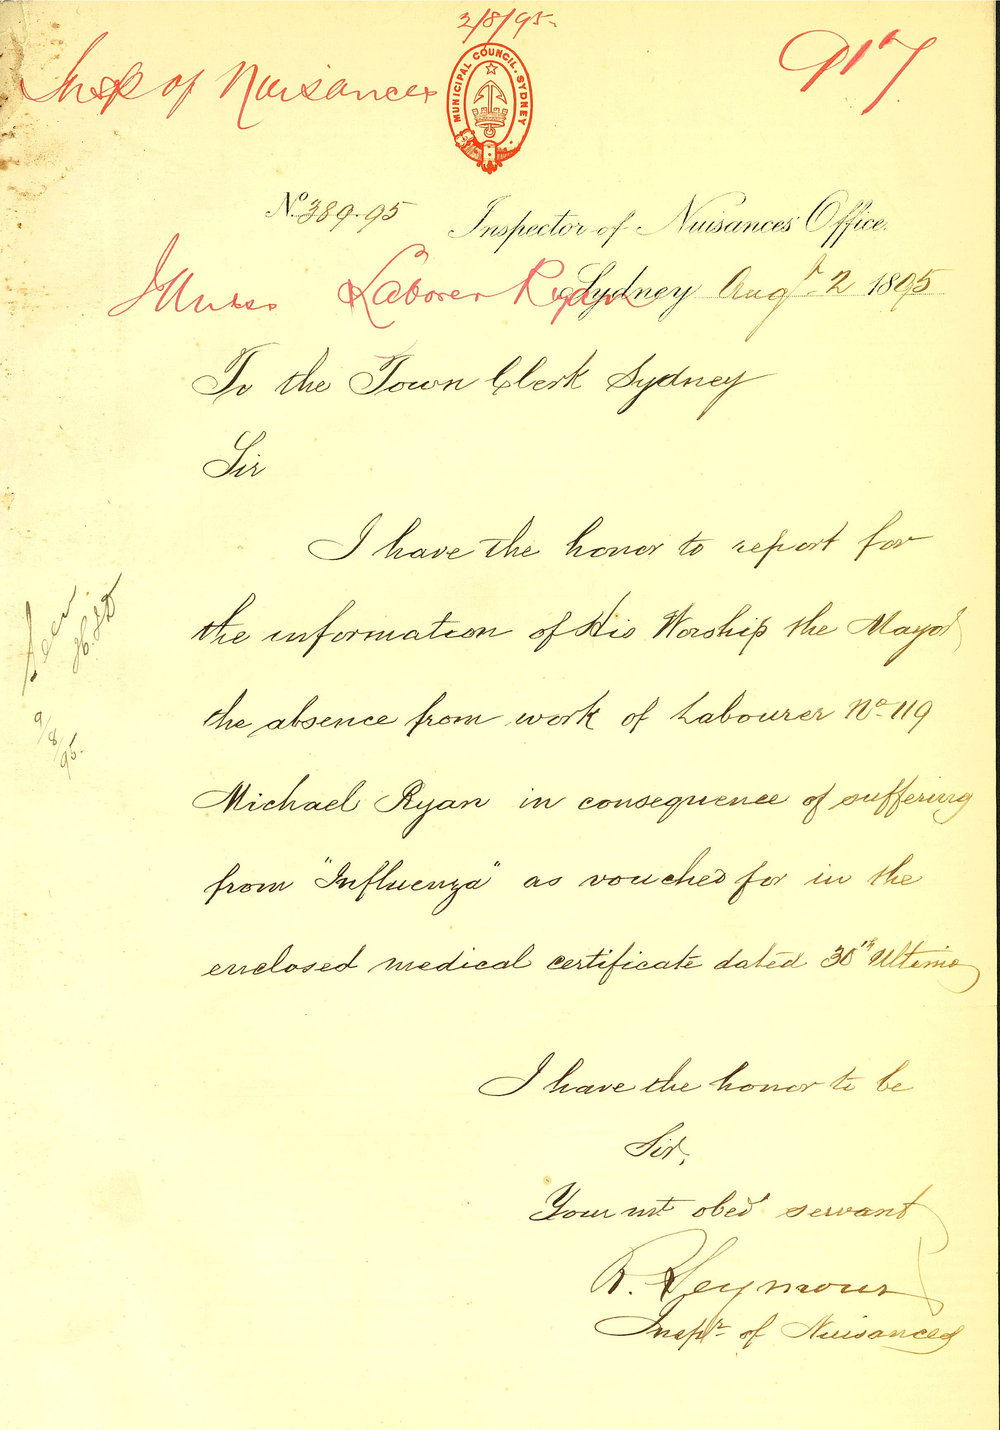 2/8/95.
Insp of Nuisances
917
MUNICIPAL COUNCIL. SYDNEY
No. 389.95
Inspector of Nuisances' Office.
Illness Laborer Ryan
Sydney Augt. 2 1895
To the Town Clerk Sydney
Sir
I have the honor to report for
the information of His Worship the Mayor
the absence from work of Labourer No. 119
Michael Ryan in consequence of suffering
from "Influenza" as vouched for in the
enclosed medical certificate dated 30th Ultimo
Seen
9/8/95.
I have the honor to be
Sir,
Your mt obed servant
R. Seymour
Inspr. of Nuisances